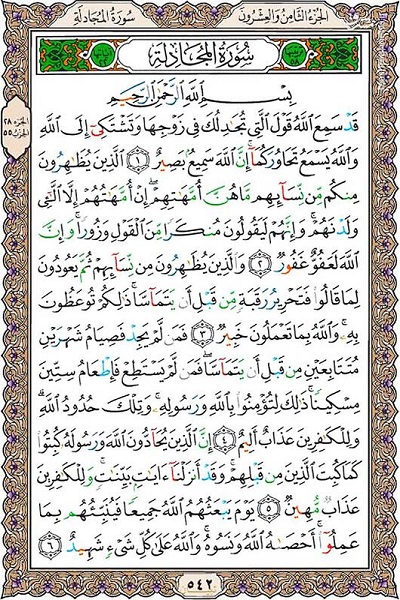 الجزء الثامن والعشرون
سورة المجادلة
سُورَةُ المُجَادلَة
الجزء ٢٨
الحزب ٥٥
بِسْمِ اللَّهِ الرَّحْمَٰنِ الرَّحِيمِ
قَدْ سَمِعَ اللَّهُ قَوْلَ الَّتِي تُجَادِلُكَ فِي زَوْجِهَا وَتَشْتَكِي إِلَى اللَّهِ
وَاللَّهُ يَسْمَعُ تَحَاوُرَكُمَا إِنَّ اللَّهَ سَمِيعٌ بَصِيرٌ ١ الَّذِينَ يُظَاهِرُونَ
مِنكُم مِّن نِّسَائِهِم مَّا هُنَّ أُمَّهَاتِهِمْ إِنْ أُمَّهَاتُهُمْ إِلَّا اللَّائِي
وَلَدْنَهُمْ وَإِنَّهُمْ لَيَقُولُونَ مُنكَرًا مِّنَ الْقَوْلِ وَزُورًا وَإِنَّ
اللَّهَ لَعَفُوٌّ غَفُورٌ ٢ وَالَّذِينَ يُظَاهِرُونَ مِن نِّسَائِهِمْ ثُمَّ يَعُودُونَ
لِمَا قَالُوا فَتَحْرِيرُ رَقَبَةٍ مِّن قَبْلِ أَن يَتَمَاسَّا ذَٰلِكُمْ تُوعَظُونَ
بِهِ وَاللَّهُ بِمَا تَعْمَلُونَ خَبِيرٌ ٣ فَمَن لَّمْ يَجِدْ فَصِيَامُ شَهْرَيْنِ
مُتَتَابِعَيْنِ مِن قَبْلِ أَن يَتَمَاسَّا فَمَن لَّمْ يَسْتَطِعْ فَإِطْعَامُ سِتِّينَ
مِسْكِينًا ذَٰلِكَ لِتُؤْمِنُوا بِاللَّهِ وَرَسُولِهِ وَتِلْكَ حُدُودُ اللَّهِ
وَلِلْكَافِرِينَ عَذَابٌ أَلِيمٌ ٤ إِنَّ الَّذِينَ يُحَادُّونَ اللَّهَ وَرَسُولَهُ كُبِتُوا
كَمَا كُبِتَ الَّذِينَ مِن قَبْلِهِمْ وَقَدْ أَنزَلْنَا آيَاتٍ بَيِّنَاتٍ وَلِلْكَافِرِينَ
عَذَابٌ مُّهِينٌ ٥ يَوْمَ يَبْعَثُهُمُ اللَّهُ جَمِيعًا فَيُنَبِّئُهُم بِمَا
عَمِلُوا أَحْصَاهُ اللَّهُ وَنَسُوهُ وَاللَّهُ عَلَىٰ كُلِّ شَيْءٍ شَهِيدٌ ٦
٥٤٢